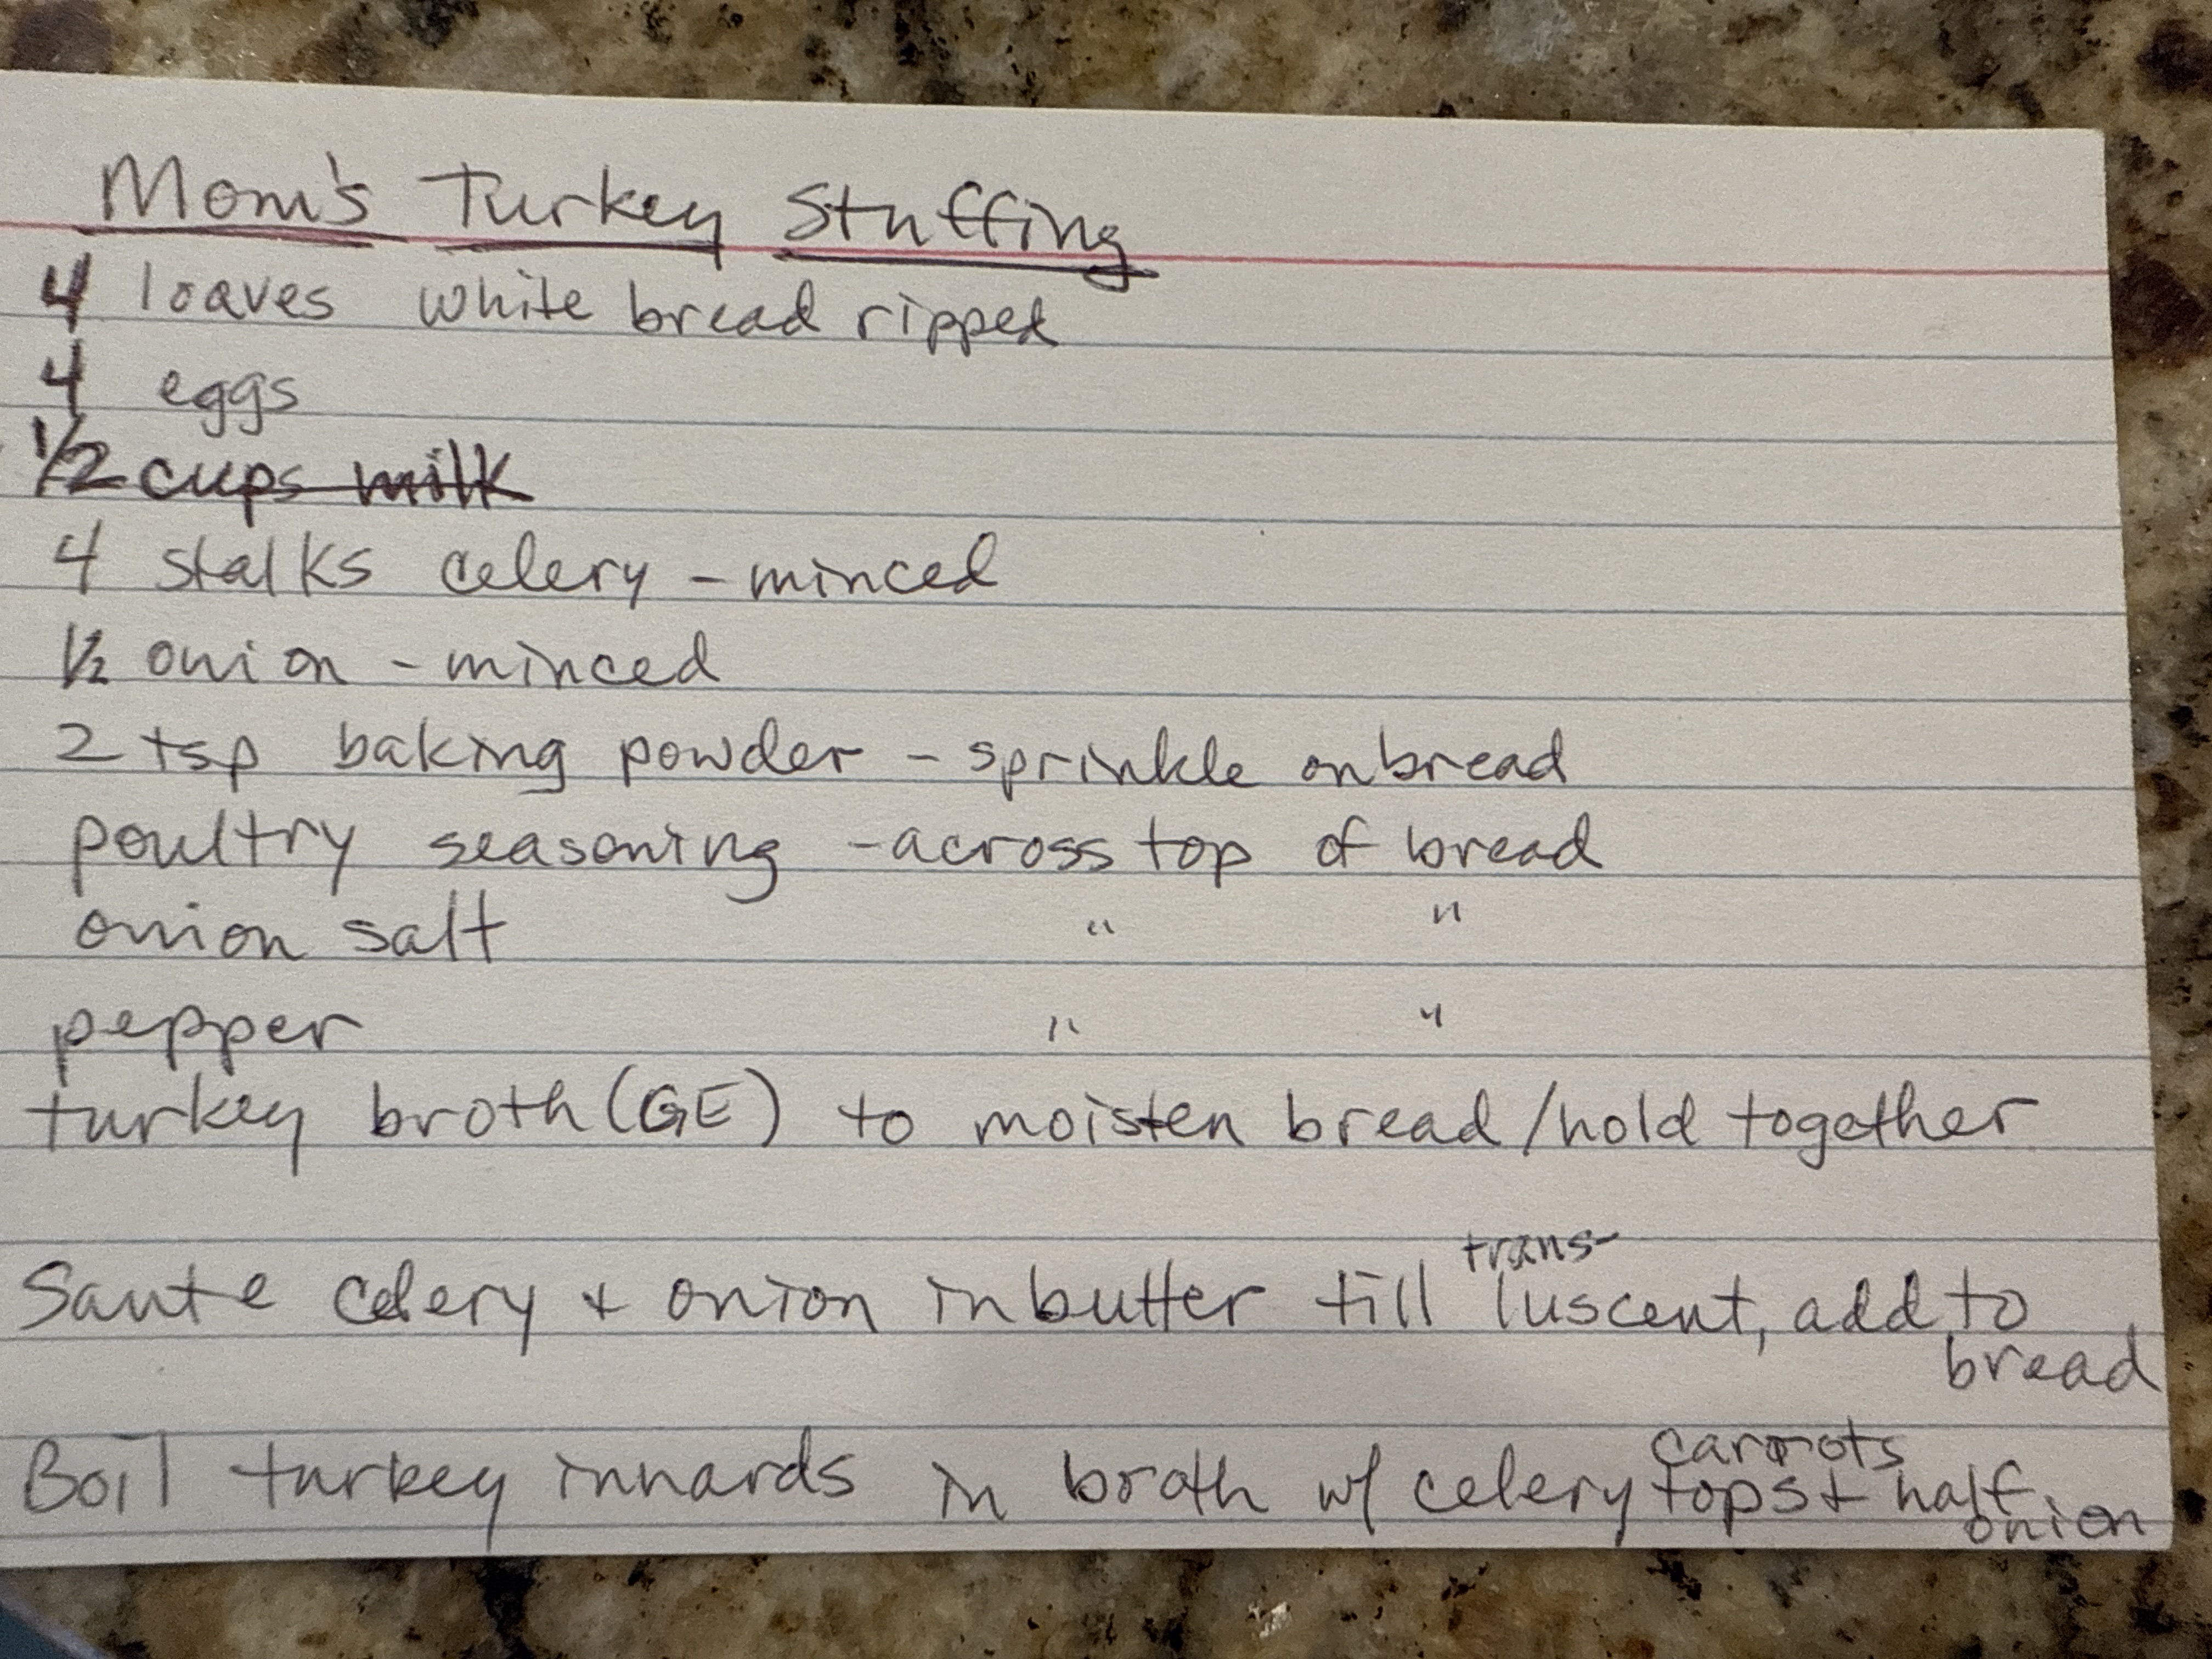 Mom's Turkey Stuffing
4 loaves white bread ripped
4 eggs
1/2 cups milk
4 stalks celery - minced
1/2 onion - minced
2 tsp baking powder - sprinkle on bread
poultry seasoning - across top of bread
onion salt " "
pepper " "
turkey broth (GE) to moisten bread/hold together
Saute celery + onion in butter till trans-
luscent, add to
bread
Boil turkey innards in broth w/ celery tops carrots + half
onion